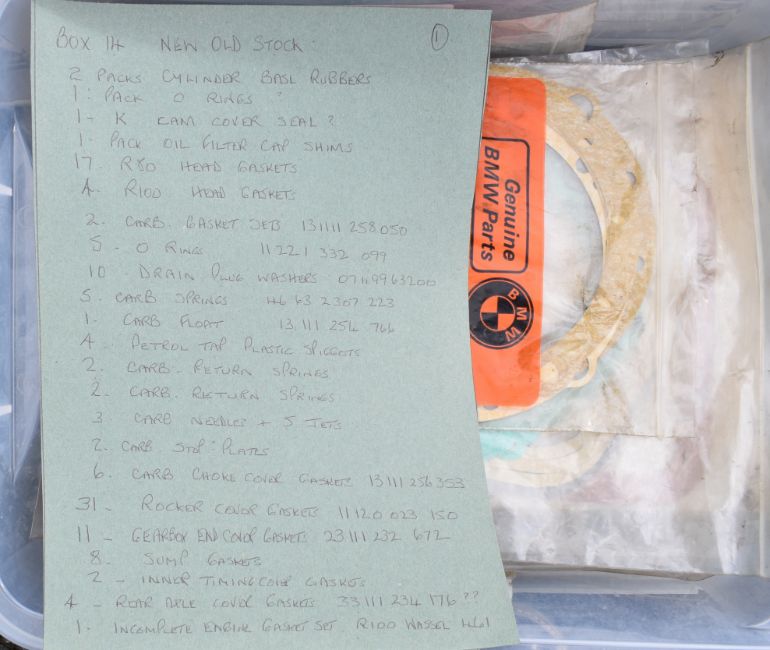 BOX 14 NEW OLD STOCK: 1
2 PACKS CYLINDER BASE RUBBERS
1. PACK O RINGS ?
1 - K CAM COVER SEAL ?
1. PACK OIL FILTER CAP SHIMS
17. R80 HEAD GASKETS
4. R100 HEAD GASKETS
2. CARB. GASKET SETS 131111 258050
5 - O RINGS 11 221 332 099
10 DRAIN PLUG WASHERS 07119963200
5. CARB SPRINGS 46 63 2307 223
1. CARB FLOAT 13 111 254 766
4 - PETROL TAP PLASTIC SPIGGETS
2. CARB. RETURN SPRINGS
2. CARB. RETURN SPRINGS
3 CARB NEEDLES + 5 JETS
2. CARB STOP PLATES
6. CARB CHOKE COVER GASKETS 13 111 256 353
31 - ROCKER COVER GASKETS 11 120 023 150
11 - GEARBOX END COVER GASKETS 23 111 232 672
8 - SUMP GASKETS
2 - INNER TIMING COVER GASKETS
4 - REAR AXLE COVER GASKETS 33 111 234 176 ??
1 - INCOMPLETE ENGINE GASKET SET R100 WASSEL 461
Genuine
BMW Parts
BMW